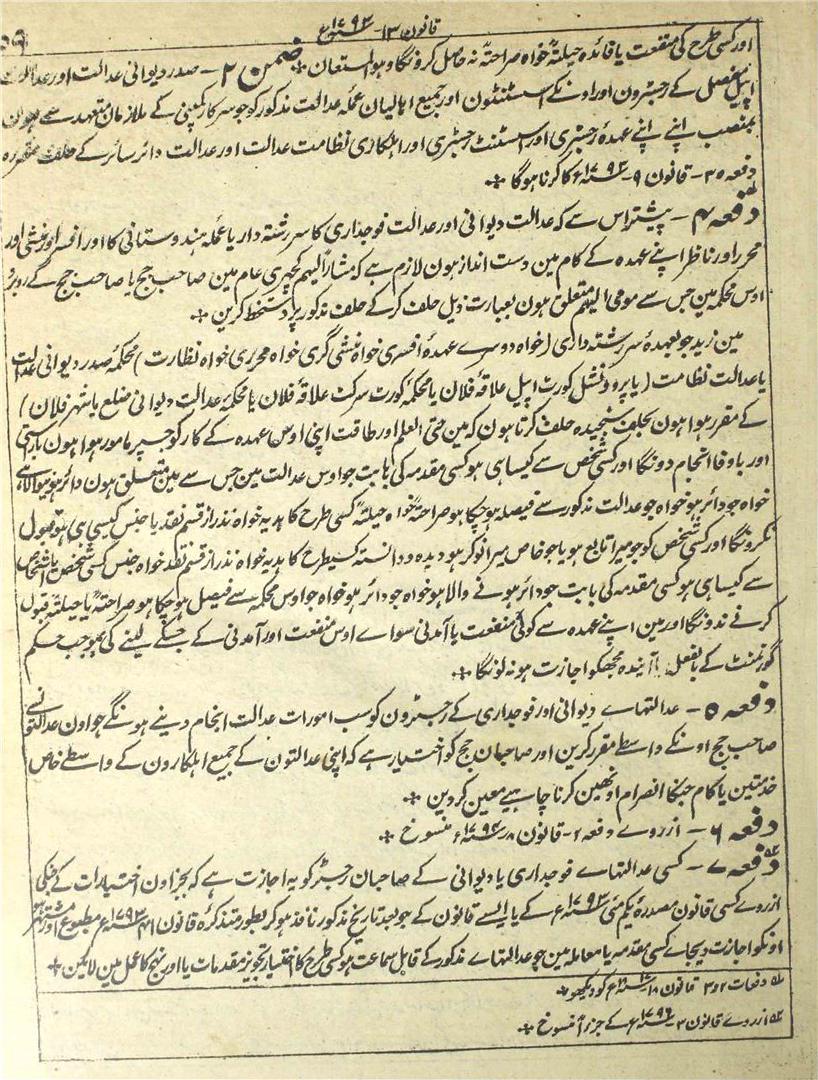 قانون ۱۳ - سنہ ۱۷۹۳ ع
اور کسی طرح کی منفعت یا فائدہ حیلتہً خواہ صراحتہً نہ حاصل کرونگا وہو المستعان * ضمن ۲ - صدر دیوانی عدالت اور عدالت
اپیل مفصل کے رجسٹرون اور اونکے اسسٹنٹون اور جمیع اہالیان عملہ عدالت مذکور کو جو سرکار کمپنی کے ملازمان متعہد سے ہون
بمنصب اپنے اپنے عہدہ رجسٹری اور اسسٹنٹ رجسٹری اور اہلکاری نظامت عدالت اور عدالت دائر سائر کے حلف مقررہ
دفعہ ۳۵ - قانون ۹ - سنہ ۱۷۹۳ ع کا کرنا ہوگا *
دفعہ ۴ - پیشتر اس سے کہ عدالت دیوانی اور عدالت فوجداری کا سررشتہ دار یا عملہ ہندوستانی کا اور افسر اور منشی اور
محرر اور ناظر اپنے عہدہ کے کام مین دست انداز ہون لازم ہے کہ مشار الیہم کچہری عام مین صاحب جج یا صاحب جج کے روبرو
اوس محکمہ مین جس سے مومی الیہم متعلق ہون بعبارت ذیل حلف کرکے حلف مذکور پر دستخط کرین *
مین زید جو بعہدۂ سررشتہ داری (خواہ دوسرے عہدۂ افسری خواہ منشی گری خواہ محرری خواہ نظارت) محکمۂ صدر دیوانی عدالت
یا عدالت نظامت (یا پروونشل کورٹ اپیل علاقہ فلان یا محکمہ کورٹ سرکٹ علاقہ فلان یا محکمہ عدالت دیوانی ضلع یا شہر فلان)
کے مقرر ہوا ہون بحلف سنجیدہ حلف کرتا ہون کہ مین حتی العلم اور طاقت اپنی اوس عہدہ کے کار کو جسپر مامور ہوا ہون براستی
اور باوفا انجام دونگا اور کسی شخص سے کیسا ہی ہو کسی مقدمہ کی بابت جو اوس عدالت مین جس سے مین متعلق ہون دائر ہونیوالا ہے
خواہ جو دائر ہو خواہ جو عدالت مذکور سے فیصلہ ہوچکا ہو صراحتہً خواہ حیلتہً کسی طرح کا ہدیہ خواہ نذر از قسم نقد یا جنس کیسی ہی ہو قبول
نکرونگا اور کسی شخص کو جو میرا تابع ہو یا جو خاص میرا نوکر ہو دیدہ و دانستہ کسیطرح کا ہدیہ خواہ نذر از قسم نقد خواہ جنس کسی شخص یا اشخاص
سے کیسا ہی ہو کسی مقدمہ کی بابت جو دائر ہونے والا ہو خواہ جو دائر ہو خواہ جو اوس محکمہ سے فیصل ہوچکا ہو صراحتہً یا حیلتہً قبول
کرنے ندونگا اور مین اپنے عہدہ سے کوئی منفعت یا آمدنی سواے اوس منفعت اور آمدنی کے جسکے لینے کی بموجب حکم
گورنمنٹ کے بالفعل یا آیندہ مجھکو اجازت ہو نہ لونگا *
دفعہ ۵ - عدالتہاے دیوانی اور فوجداری کے رجسٹرون کو سب امورات عدالت انجام دینے ہونگے جو اون عدالتونکے
صاحب جج اونکے واسطے مقرر کرین اور صاحبان جج کو اختیار ہے کہ اپنی عدالتون کے جمیع اہلکارون کے واسطے خاص
خدمتین یا کام جنکا انصرام اونھین کرنا چاہیے معین کردین *
دفعہ ۶ - ازروے دفعہ ۲ - قانون ۸ سنہ ۱۷۹۴ ع منسوخ *
دفعہ ۷ - کسی عدالتہاے فوجداری یا دیوانی کے صاحبان رجسٹر کو یہ اجازت ہے کہ بجز اون اختیارات کے جنکی
ازروے کسی قانون مصدرہ یکم مئی سنہ ۱۷۹۳ ع کے یا ایسے قانون کے جو بعد تاریخ مذکور نافذ ہوکر بطور متذکرہ قانون ۴۱ سنہ ۱۷۹۳ ع مطبوع اور مشتہر ہو
اونکو اجازت دیجاے کسی مقدمہ یا معاملہ مین جو عدالتہاے مذکور کے قابل سماعت ہو کسی طرح کا اختیار تجویز مقدمات یا اور نہج کا عمل مین لائین *
۵۱ دفعات ۲ و ۳ قانون ۱۸ سنہ کو دیکھو *
۵۲ ازروے قانون ۳ سنہ ۱۷۹۶ ع کے جزءاً منسوخ *